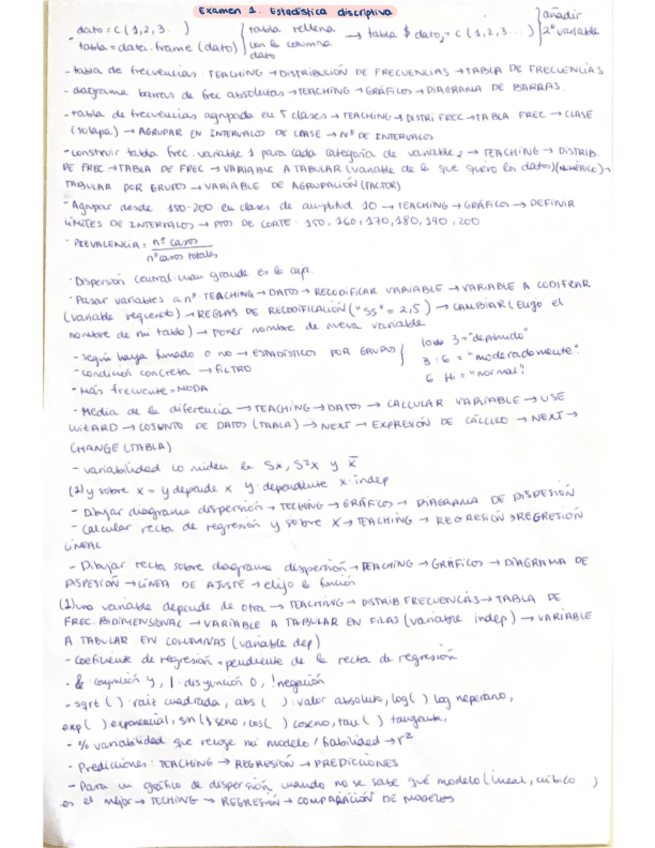 Examen 1. Estadística discriptiva
- dato = c(1,2,3. ) } tabla rellena con la columna dato → tabla $ dato2 = c(1,2,3...) } añadir 2º variable
- tabla = data.frame (dato)
- tabla de frecuencias: TEACHING → DISTRIBUCIÓN DE FRECUENCIAS → TABLA DE FRECUENCIAS
- diagrama barras de frec absolutas → TEACHING → GRÁFICOS → DIAGRAMA DE BARRAS.
- tabla de frecuencias agrupada en 5 clases → TEACHING → DISTRI FREC → TABLA FREC → CLASE
(solapa) → AGRUPAR EN INTERVALOS DE CLASE → Nº DE INTERVALOS
- construir tabla frec. variable 1 para cada categoría de variable 2 → TEACHING → DISTRIB.
DE FREC → TABLA DE FREC → VARIABLE A TABULAR (variable de la que quiero los datos)(NUMÉRICO) →
TABULAR POR GRUPOS → VARIABLE DE AGRUPACIÓN (FACTOR)
- Agrupar desde 150-200 en clases de amplitud 10 → TEACHING → GRÁFICOS → DEFINIR
LÍMITES DE INTERVALOS → PTOS DE CORTE: 150, 160, 170, 180, 190, 200
- PREVALENCIA = nº casos
nº casos totales
- Dispersión central: cuan grande es la caja.
- Pasar variables a nº: TEACHING → DATOS → RECODIFICAR VARIABLE → VARIABLE A CODIFICAR
(variable requerida) → REGLAS DE RECODIFICACIÓN ("SS" = 2,5) → CAMBIAR (Elijo el
nombre de mi tabla) → poner nombre de nueva variable
- según haya fumado o no → ESTADÍSTICOS POR GRUPOS { low: 3 = "deprimido"
- condición concreta → FILTRO 3:6 = "moderadamente"
- más frecuente = MODA 6:Hi = "normal"
- Media de la diferencia → TEACHING → DATOS → CALCULAR VARIABLE → USE
WIZARD → COJUNTO DE DATOS (TABLA) → NEXT → EXPRESIÓN DE CÁLCULO → NEXT →
CHANGE (TABLA)
- variabilidad lo miden la Sx, S²x y x̄
(2) y sobre x = y depende x y: dependiente x: indep
- Dibujar diagrama dispersión → TECHING → GRÁFICOS → DIAGRAMA DE DISPESIÓN
- Calcular recta de regresión y sobre X → TEACHING → REGRESIÓN → REGRESIÓN
LINEAL
- Dibujar recta sobre diagrama dispersión → TEACHING → GRÁFICOS → DIAGRAMA DE
DISPESIÓN → LÍNEA DE AJUSTE → elijo la función
(1) una variable depende de otra → TEACHING → DISTRIB. FRECUENCIAS → TABLA DE
FREC. BIDIMENSIONAL → VARIABLE A TABULAR EN FILAS (variable indep) → VARIABLE
A TABULAR EN COLUMNAS (variable dep)
- Coeficiente de regresión = pendiente de la recta de regresión
- &: conjunción y, |: disyunción O, ! negación
- sqrt ( ): raíz cuadrada, abs ( ): valor absoluto, log( ) log neperiano,
exp( ) exponencial, sin( ) seno, cos( ) coseno, tan( ) tangente,
- % variabilidad que recoge mi modelo / fiabilidad → r²
- Predicciones: TEACHING → REGRESIÓN → PREDICCIONES
- Para un gráfico de dispersión cuando no se sabe qué modelo (lineal, cúbico )
es el mejor → TECHING → REGRESIÓN → COMPARACIÓN DE MODELOS